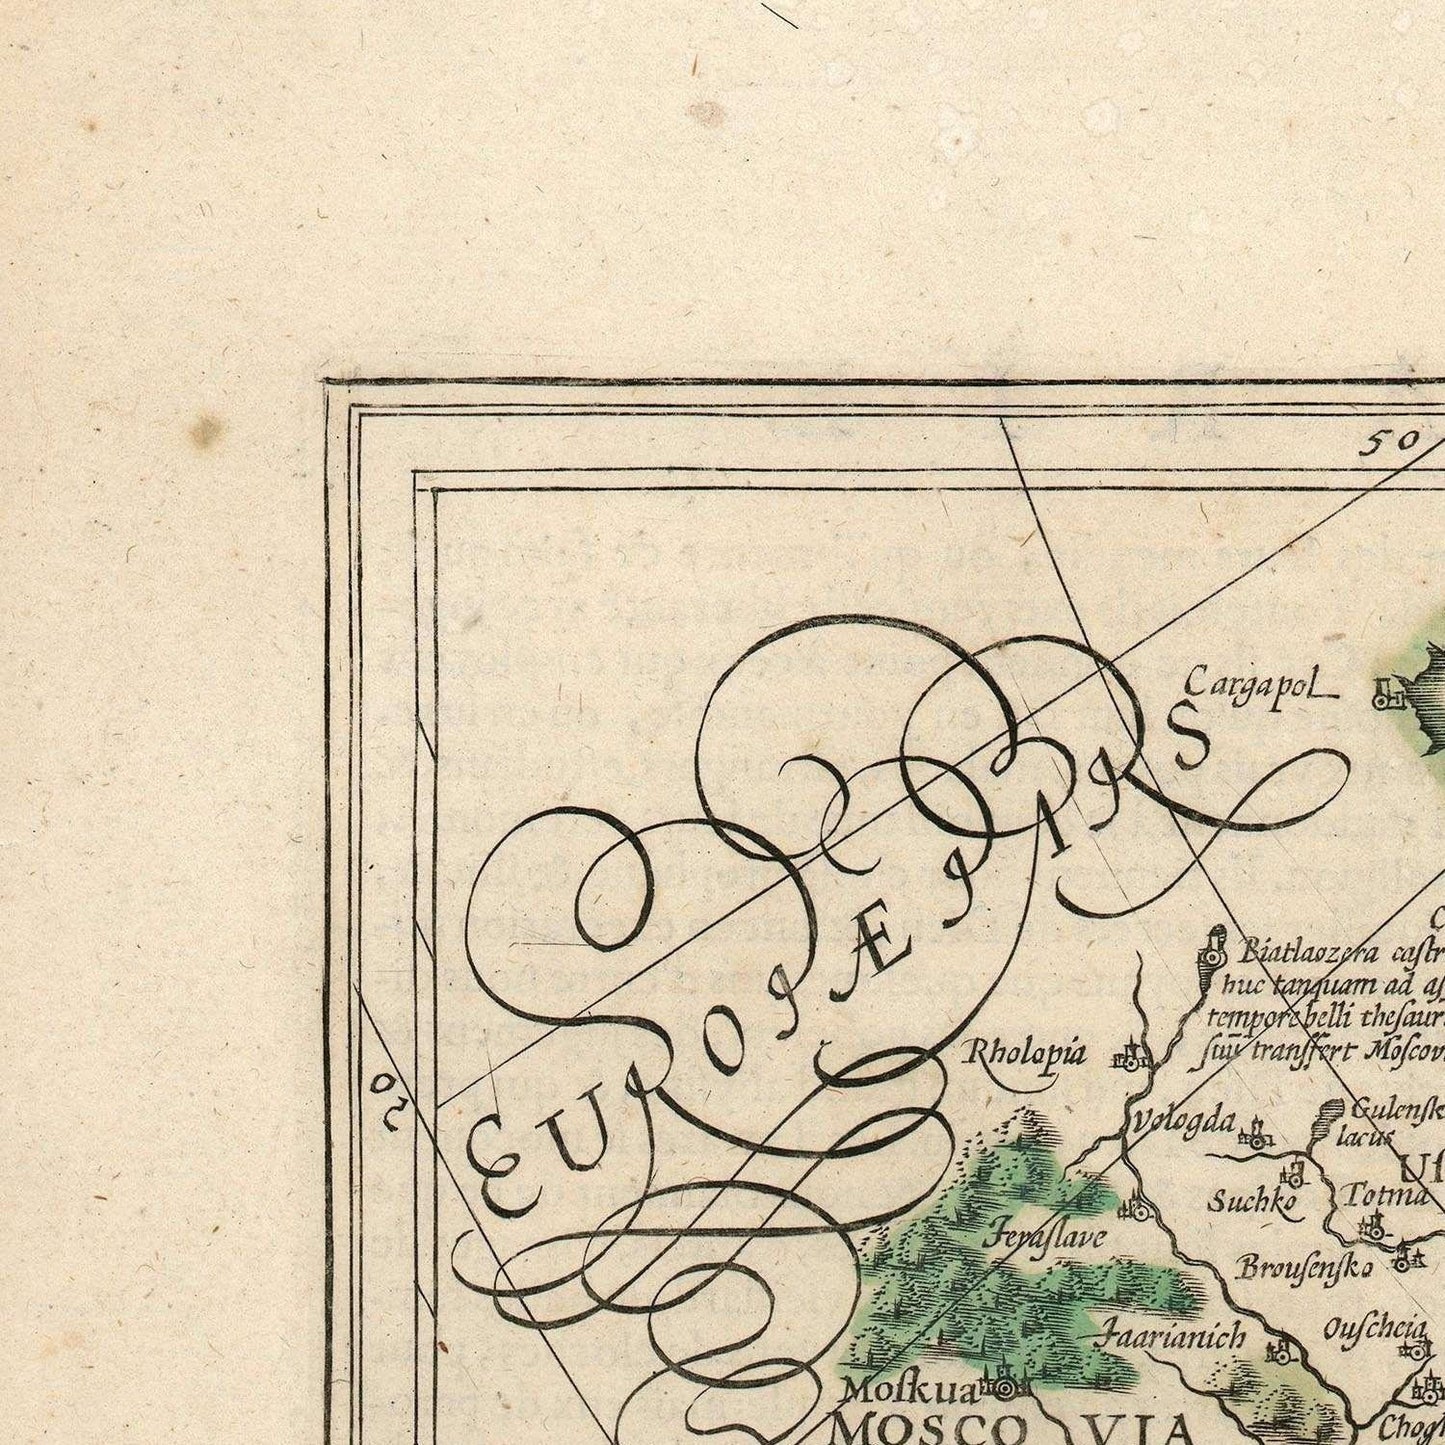 50
Cargapol
EUROPÆ PARS
Biatlaozera caſtr
huc tanquam ad aſ
tempore belli theſaur
ſuū tranſfert Moſcov
Rholopia
Vologda
Gulenſk
lacus
Suchko
Totma
Jeraſlave
Brouſenſko
Jaarianich
Ouſcheia
Moſkua
MOSCO VIA
Chog